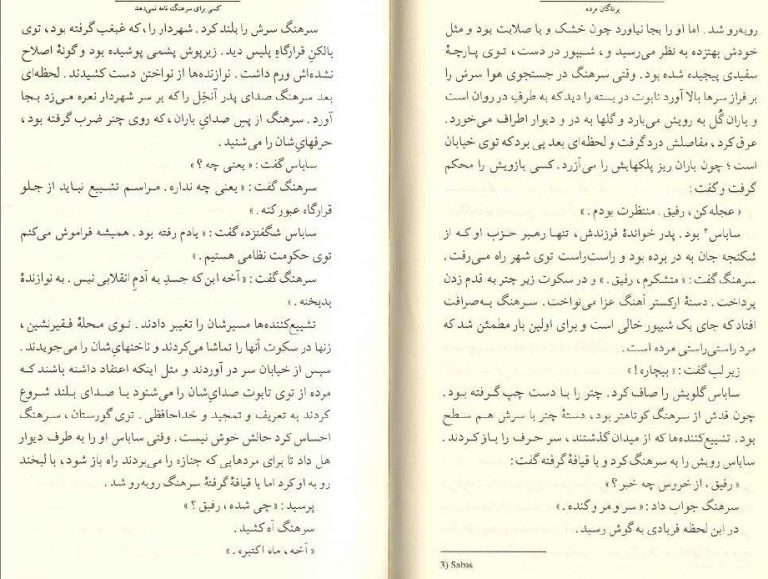 پرندگان مرده
روبه‌رو شد. اما او را بجا نیاورد چون خشک و با صلابت بود و مثل
خودش بهتزده به نظر می‌رسید و، شیپور در دست، توی پارچهٔ
سفیدی پیچیده شده بود. وقتی سرهنگ در جستجوی هوا سرش را
بر فراز سرها بالا آورد تابوت در بسته را دید که به طرفِ در روان است
و باران گُل به رویش می‌بارد و گلها به در و دیوار اطراف می‌خورد.
عرق کرد، مفاصلش درد گرفت و لحظه‌ای بعد پی برد که توی خیابان
است؛ چون باران ریز پلکهایش را می‌آزرد. کسی بازویش را محکم
گرفت و گفت:
«عجله کن، رفیق. منتظرت بودم.»
ساباس۳ بود. پدر خواندهٔ فرزندش، تنها رهبر حزب او که از
شکنجه جان به در برده بود و راست‌راست توی شهر راه می‌رفت.
سرهنگ گفت: «متشکرم، رفیق.» و در سکوت زیر چتر به قدم زدن
پرداخت. دستهٔ ارکستر آهنگ عزا می‌نواخت. سرهنگ به‌صرافت
افتاد که جای یک شیپور خالی است و برای اولین بار مطمئن شد که
مرد راستی‌راستی مرده است.
زیر لب گفت: «بیچاره!»
ساباس گلویش را صاف کرد. چتر را با دست چپ گرفته بود.
چون قدش از سرهنگ کوتاهتر بود، دستهٔ چتر با سرش هم سطح
بود. تشییع‌کننده‌ها که از میدان گذشتند، سر حرف را باز کردند.
ساباس رویش را به سرهنگ کرد و با قیافهٔ گرفته گفت:
«رفیق، از خروس چه خبر؟»
سرهنگ جواب داد: «سر و مر و گنده.»
در این لحظه فریادی به گوش رسید.
3) Sabas
کسی برای سرهنگ نامه نمی‌دهد
سرهنگ سرش را بلند کرد. شهردار را، که غبغب گرفته بود، توی
بالکنِ قرارگاهِ پلیس دید. زیرپوش پشمی پوشیده بود و گونهٔ اصلاح
نشده‌اش ورم داشت. نوازنده‌ها از نواختن دست کشیدند. لحظه‌ای
بعد سرهنگ صدای پدر آنخِل را که بر سر شهردار نعره می‌زد بجا
آورد. سرهنگ از پسِ صدایِ باران، که روی چتر ضرب گرفته بود،
حرفهایِ‌شان را می‌شنید.
ساباس گفت: «یعنی چه؟»
سرهنگ گفت: «یعنی چه نداره. مراسم تشییع نباید از جلو
قرارگاه عبور کنه.»
ساباس شگفتزده گفت: «یادم رفته بود. همیشه فراموش می‌کنم
توی حکومت نظامی هستیم.»
سرهنگ گفت: «آخه این که جسدِ یه آدمِ انقلابی نیس. یه نوازندهٔ
بدبخته.»
تشییع‌کننده‌ها مسیرشان را تغییر دادند. توی محلهٔ فقیرنشین،
زنها در سکوت آنها را تماشا می‌کردند و ناخنهایِ‌شان را می‌جویدند.
سپس از خیابان سر در آوردند و مثل اینکه اعتقاد داشته باشند که
مرده از توی تابوت صدایِ‌شان را می‌شنود با صدای بلند شروع
کردند به تعریف و تمجید و خداحافظی. توی گورستان، سرهنگ
احساس کرد حالش خوش نیست. وقتی ساباس او را به طرف دیوار
هل داد تا برای مردهایی که جنازه را می‌بردند راه باز شود، با لبخند
رو به او کرد اما با قیافهٔ گرفتهٔ سرهنگ روبه‌رو شد.
پرسید: «چی شده، رفیق؟»
سرهنگ آه کشید.
«آخه، ماه اکتبره.»